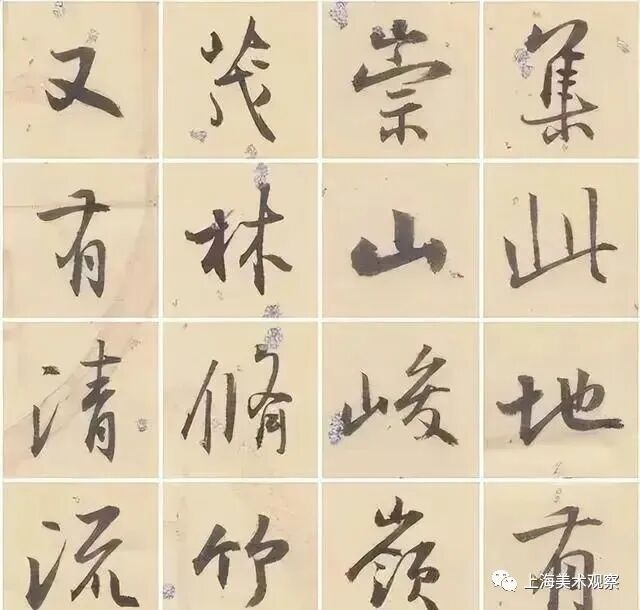 集此地有
崇山峻嶺
茂林脩竹
又有清流
上海美术观察